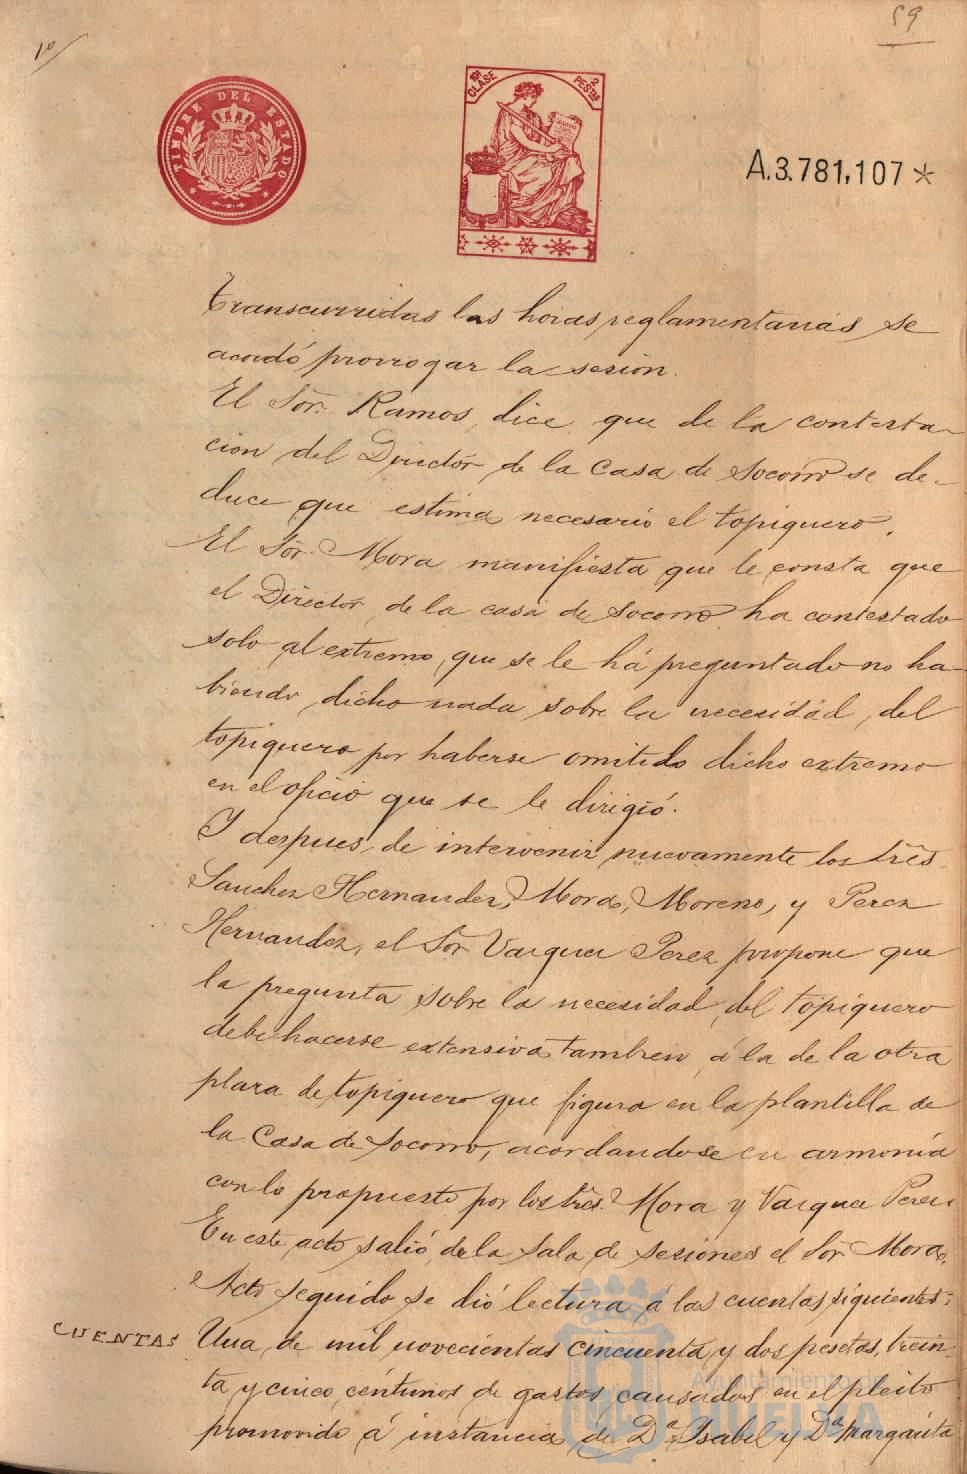 1º/
59
TIMBRE DEL ESTADO
10ª CLASE
2 PESTAS
A.3.781,107*
transcurridas las horas reglamentarias se
acordó prorrogar la sesion.
El Sor. Ramos dice que de la contesta-
cion del Director de la Casa de Socorro se de-
duce que estima necesario el topiquero.
El Sor. Mora manifiesta que le consta que
el Director de la casa de Socorro ha contestado
solo al extremo que se le há preguntado no ha-
biendo dicho nada sobre la necesidad del
topiquero por haberse omitido dicho extremo
en el oficio que se le dirigió.
Y despues de intervenir nuevamente los Sres.
Sanchez Hernandez, Mora, Moreno, y Perez
Hernandez, el Sor Vazquez Perez propone que
la pregunta sobre la necesidad del topiquero
debe hacerse extensiva tambien á la de la otra
plaza de topiquero que figura en la plantilla de
la Casa de Socorro, acordandose en armonía
con lo propuesto por los Sres. Mora y Vazquez Perez.
En este acto salió de la Sala de Sesiones el Sor Mora.
Acto seguido se dió lectura á las cuentas siguientes:
CUENTAS
Una de mil novecientas cincuenta y dos pesetas, trein-
ta y cinco céntimos de gastos causados en el pleito
promovido á instancia de Dª Isabel y Dª Margarita
Ayuntamiento de
HUELVA